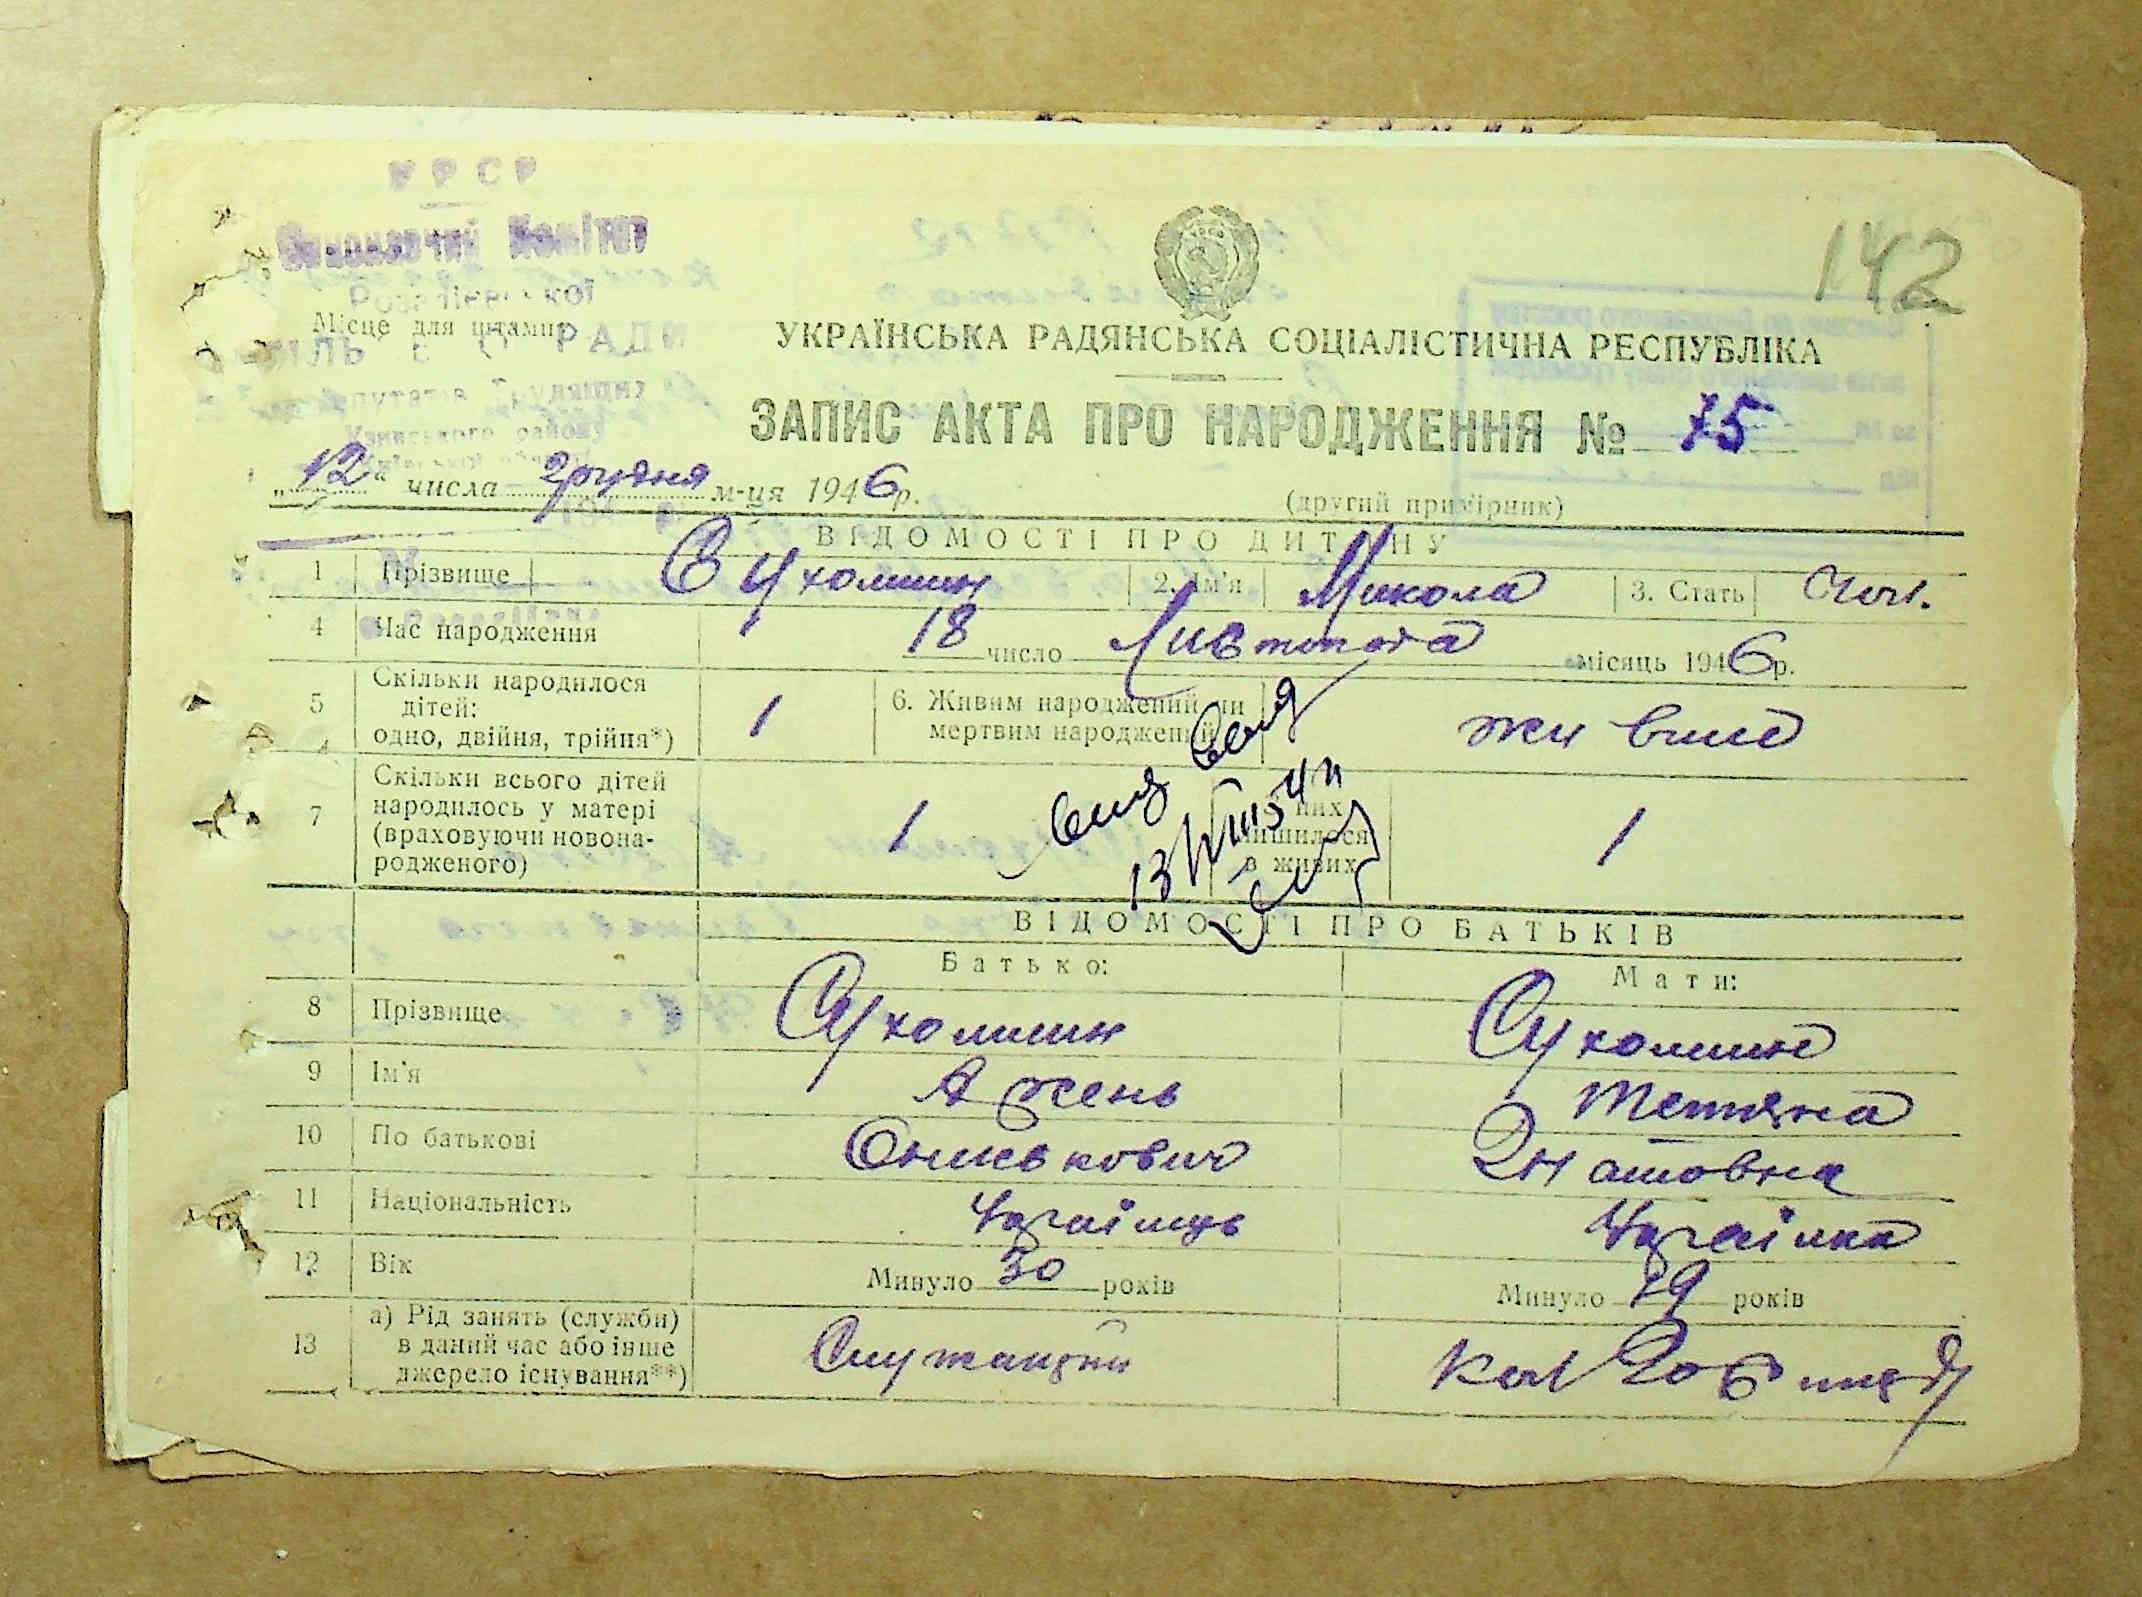 УРСР
Виконавчий Комітет
142
Місце для штампу
РАДИ
УКРАЇНСЬКА РАДЯНСЬКА СОЦІАЛІСТИЧНА РЕСПУБЛІКА
ЗАПИС АКТА ПРО НАРОДЖЕННЯ № 75
„12“ числа грудня м-ця 1946р.
(другий примірник)
ВІДОМОСТІ ПРО ДИТИНУ
1 Прізвище Сухомлин 2. Ім'я Микола 3. Стать Чол.
4 Час народження 18 число Листопада місяць 1946р.
5 Скільки народилося дітей: одно, двійня, трійня*) 1 6. Живим народжений чи мертвим народжений живий
7 Скільки всього дітей народилось у матері (враховуючи новона-родженого) 1 них лишилося в живих 1
ВІДОМОСТІ ПРО БАТЬКІВ
Батько: Мати:
8 Прізвище Сухомлин Сухомлин
9 Ім'я Тетяна
10 По батькові Гнатовна
11 Національність Українець Українка
12 Вік Минуло 30 років Минуло 19 років
13 а) Рід занять (служби) в даний час або інше джерело існування**) Служащий